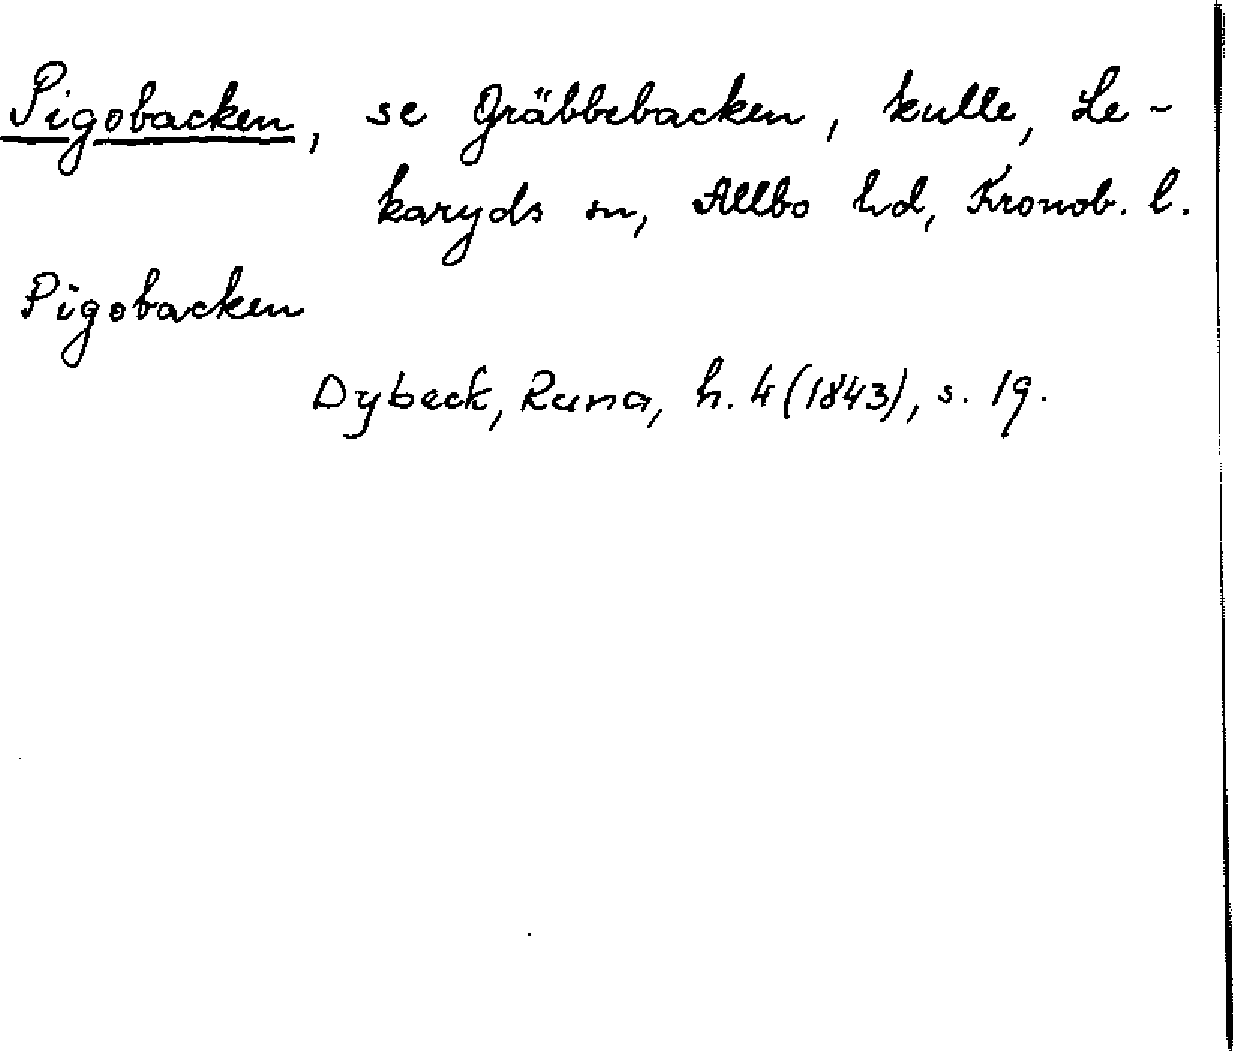 Pigobacken, se Gräbbebacken, kulle, Le-
karyds sn, Allbo hd, Kronob. l.
Pigobacken
Dybeck, Runa, h. 4 (1843), s. 19.